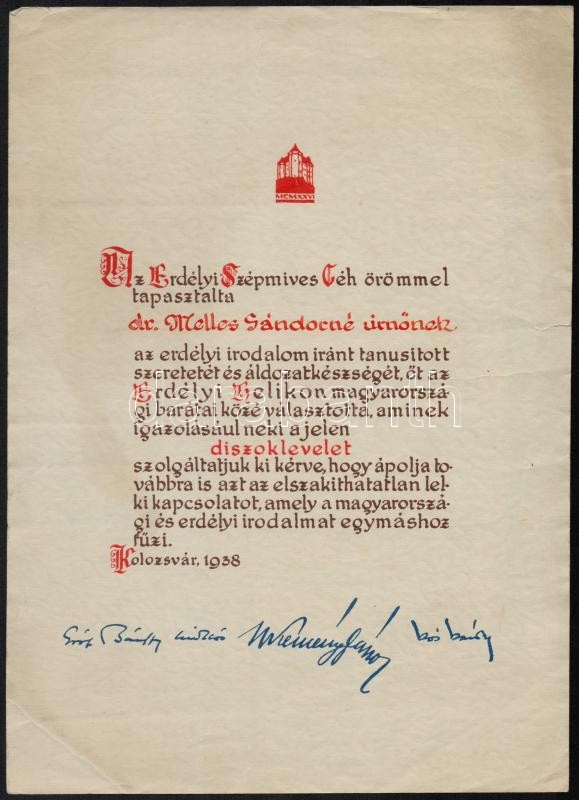 MCMXXVI
Az Erdélyi Szépmives Céh örömmel
tapasztalta
dr. Melles Sándorné úrnőnek
az erdélyi irodalom iránt tanusított
szeretetét és áldozatkészségét, őt az
Erdélyi Helikon magyarorszá-
gi barátai közé választotta, aminek
igazolásául neki a jelen
diszoklevelet
szolgáltatjuk ki kérve, hogy ápolja to-
vábbra is azt az elszakithatatlan lel-
ki kapcsolatot, amely a magyarorszá-
gi és erdélyi irodalmat egymáshoz
fűzi.
Kolozsvár, 1938
Gróf Bánffy Miklós Kemény János Kós Károly
darabanth